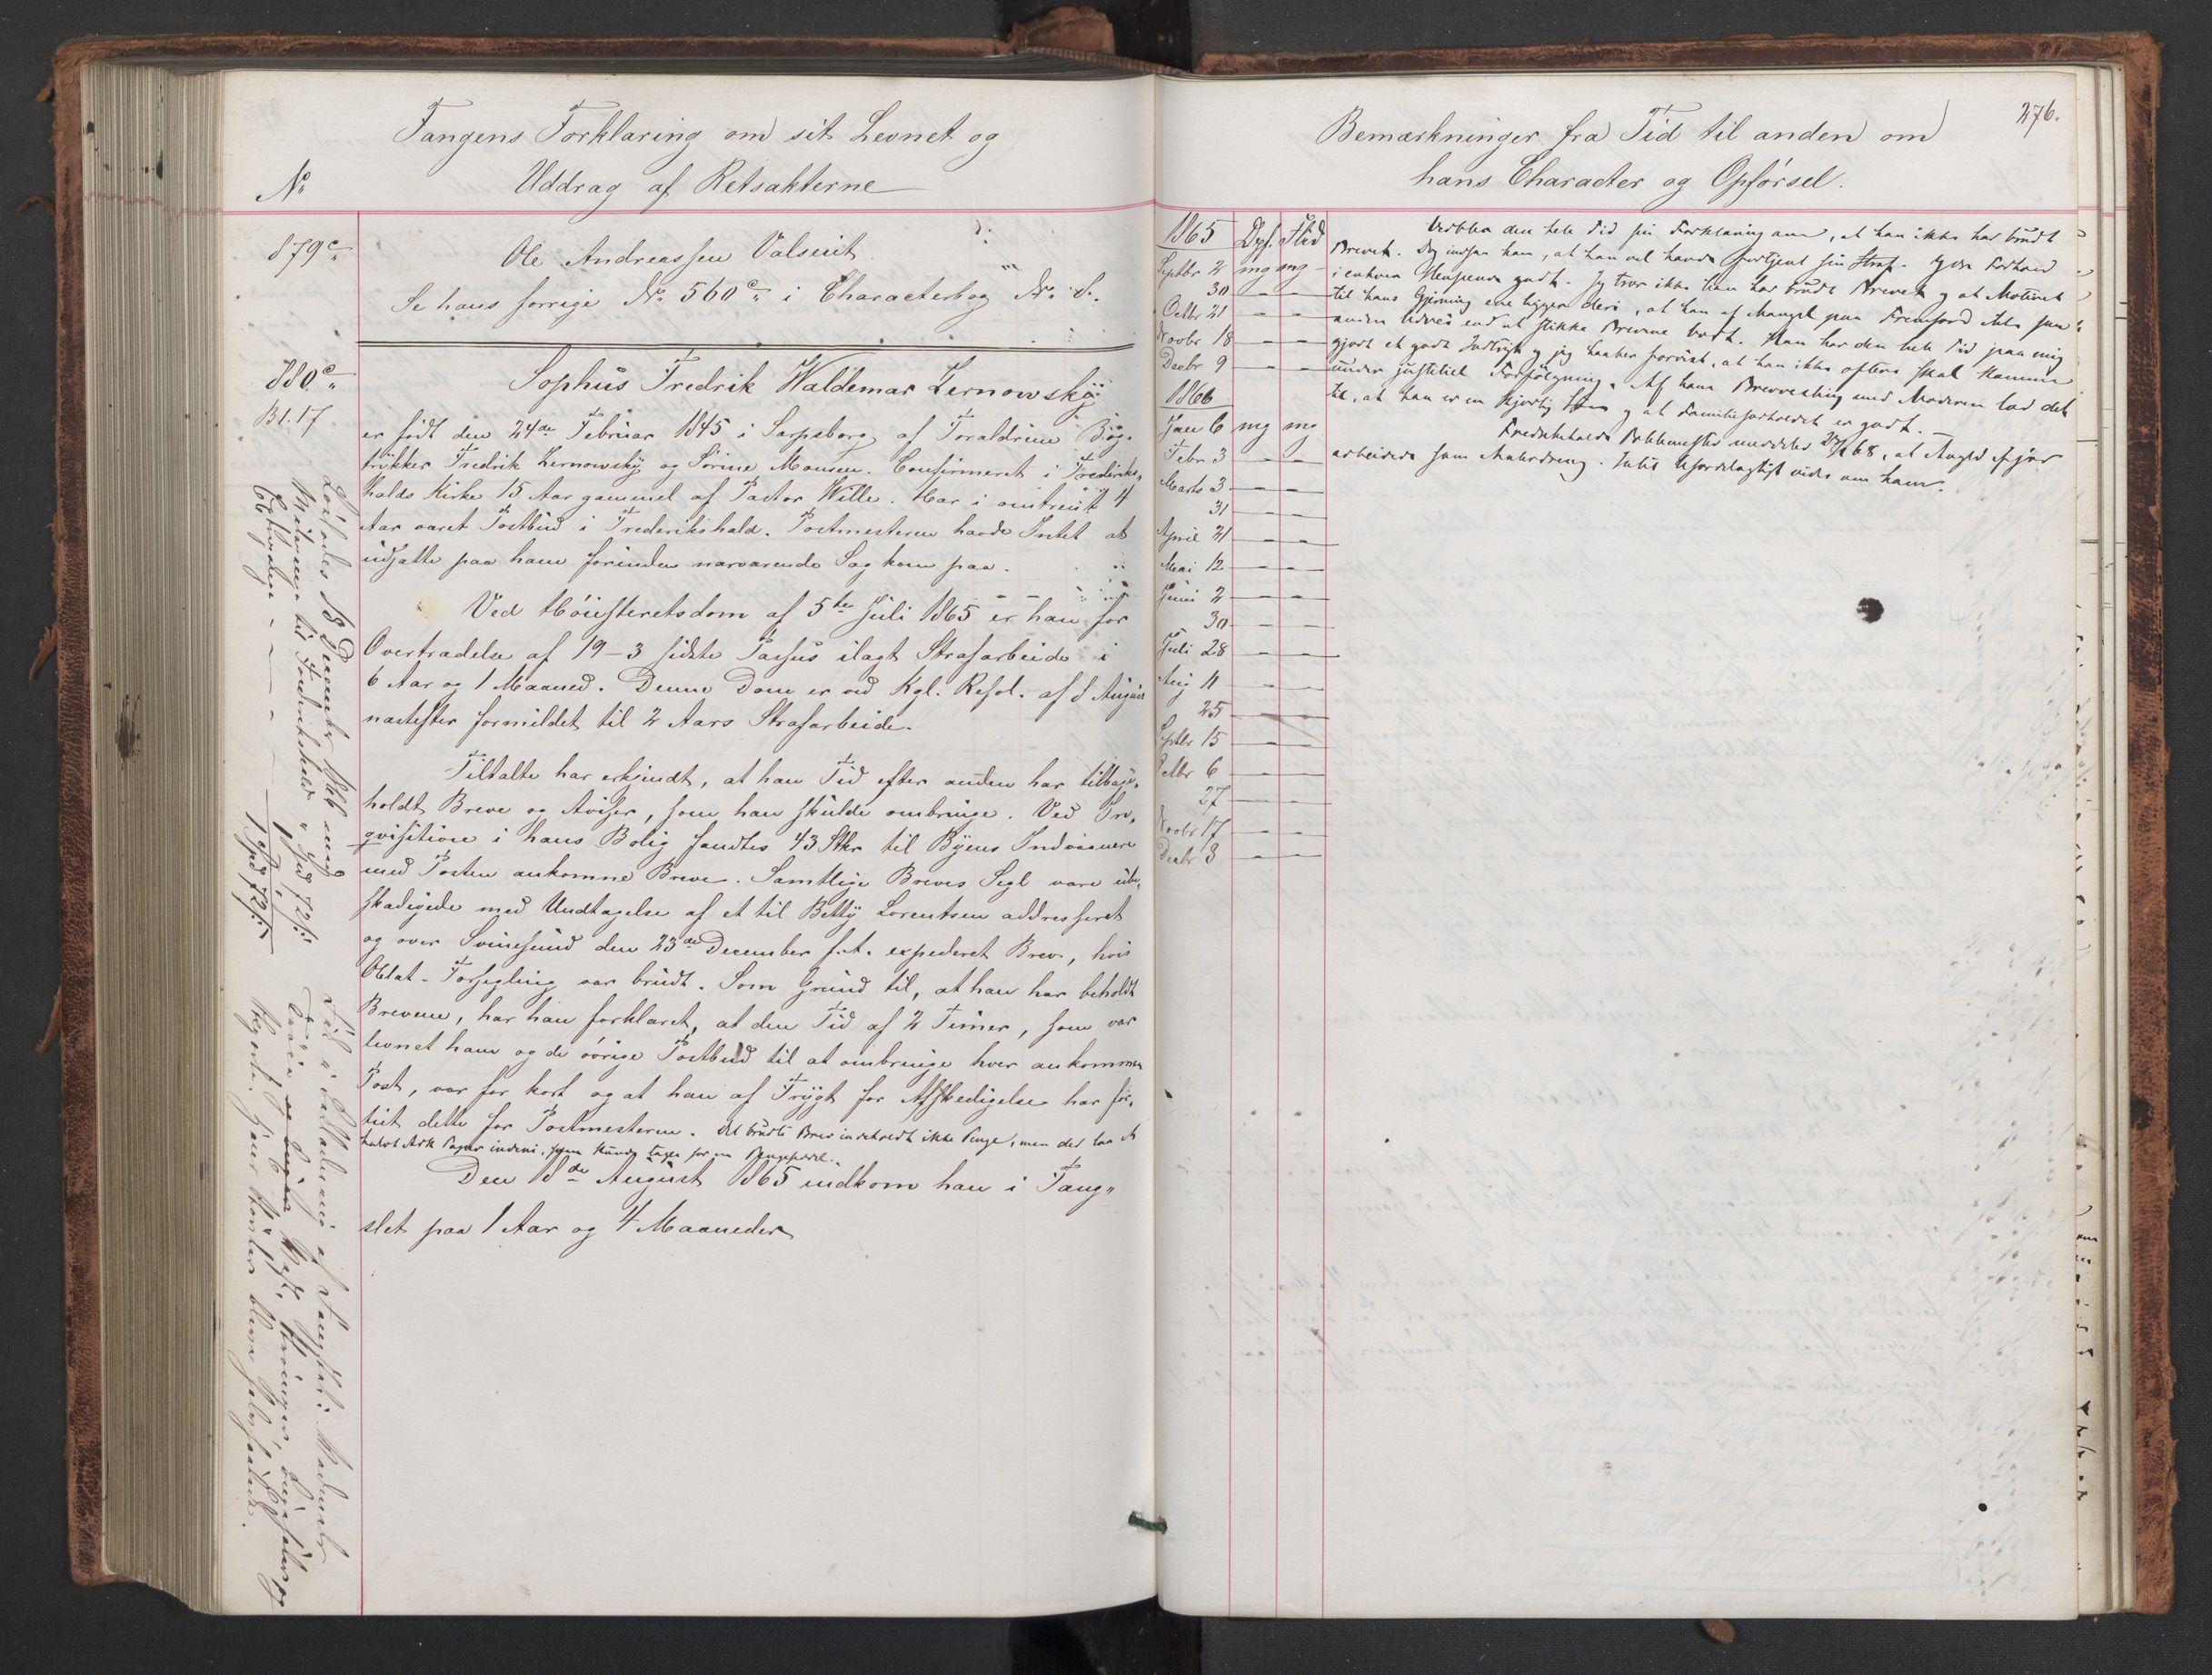 Fangens Forklaring om sit Levnet og
Uddrag af Retsakterne
No
879c
Ole Andreassen Valseut
Se hans forrige No 560c i Characterbog No 8.
880c
Bl. 17
Sophus Fredrik Waldemar Zernowsky
er født den 24de Februar 1845 i Sarpsborg af Forældrene Bog-
trykker Fredrik Zernowsky og Sörine Monsen. Confirmeret i Frederiks-
halds Kirke 15 Aar gammel af Pastor Wille. Har i omtrent 4
Aar været Postbud i Frederikshald. Postmesteren havde Intet at
udsætte paa ham forinden nærværende Sag kom paa.
Ved Höiesteretsdom af 5te Juli 1865 er han for
Overtrædelse af 19-3 sidste Passus ilagt Strafarbeide i
6 Aar og 1 Maaned. Denne Dom er ved Kgl. Resol. af 8 August
næstefter formildet til 2 Aars Strafarbeide.
Tiltalte har erkjendt, at han Tid efter anden har tilbage-
holdt Breve og Aviser, som han skulde ombringe. Ved In-
qvisition i hans Bolig fandtes 43 Stkr til Byens Indvaanere
med Posten ankomne Breve. Samtlige Breves Segl vare ube-
skadigede med Undtagelse af et til Betty Lorentsen addresseret
og over Svinesund den 23de December f. A. expederet Brev, hvis
Oblat-Forsegling var brudt. Som Grund til, at han har beholdt
Brevene, har han forklaret, at den Tid af 2 Timer, som var
levnet ham og de övrige Postbud til at ombringe hver ankommen
Post, var for kort og at han af Frygt for Afskedigelse har for-
tiet dette for Postmesteren. Det brudte Brev indeholdt ikke Penge, men der laa et
halvt Ark Papir indeni, som kunde tages for en Pengeseddel.
Den 18de August 1865 indkom han i Fæng-
slet paa 1 Aar og 4 Maaneder
Löslades 18 December 1866 med
1 Spd 72 s
1 Spd 72 s
Bemærkninger fra Tid til anden om
hans Character og Opførsel.
276.
1865 Opf. Flid
Septbr 2 mg mg
30 — —
Octbr 21 — —
Novbr 18 — —
Decbr 9 — —
1866
Jan 6 mg mg
Febr 3 — —
Marts 3 — —
31 — —
April 21 — —
Mai 12 — —
Juni 2 — —
30 — —
Juli 28 — —
Aug 11 — —
25 — —
Septbr 15 — —
Octbr 6 — —
27 — —
Novbr 17 — —
Decbr 8 — —
Vedblev den hele Tid sin Forklaring om, at han ikke har brudt
Brevet. Dog indsaa han, at han vel havde fortjent sin Straf. Hans Forhold
i enhver Henseende godt. Jeg tror ikke han har brudt Brevet og at Motivet
til hans Gjerning ene ligger deri, at han af Mangel paa Fremfærd ikke saa
anden Udvei end at stikke Brevene bort. Han har den hele Tid paa mig
gjort et godt Indtryk og jeg haaber forvist, at han ikke oftere skal komme
under justitiel Forfölgning. Af hans Brevvexling med Moderen lod det
til, at han er en kjærlig Sön og at Familieforholdet er godt.
Fredrikshalds Politimester meddeler 68, at
arbeider som. Intet Ufordelagtigt vides om ham.